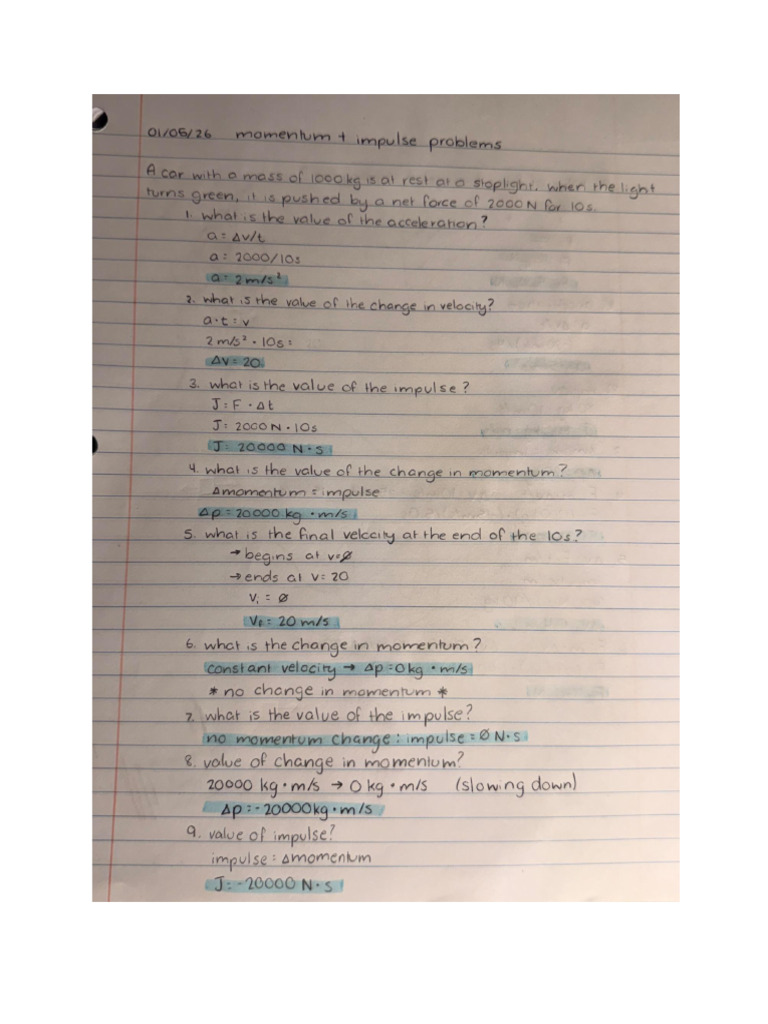 01/05/26 momentum + impulse problems
A car with a mass of 1000kg is at rest at a stoplight. when the light
turns green, it is pushed by a net force of 2000N for 10s.
1. what is the value of the acceleration?
a = Δv/t
a = 2000/10s
a = 2m/s²
2. what is the value of the change in velocity?
a·t = v
2 m/s² · 10s =
Δv = 20
3. what is the value of the impulse?
J = F · Δt
J = 2000 N · 10s
J = 20000 N · s
4. what is the value of the change in momentum?
Δmomentum = impulse
Δp = 20000 kg · m/s
5. what is the final velocity at the end of the 10s?
→ begins at v=Ø
→ ends at v= 20
Vᵢ = Ø
Vf = 20 m/s
6. what is the change in momentum?
constant velocity → Δp = 0 kg · m/s
* no change in momentum *
7. what is the value of the impulse?
no momentum change : impulse = Ø N·s
8. value of change in momentum?
20000 kg · m/s → 0 kg · m/s (slowing down)
Δp = -20000kg · m/s
9. value of impulse?
impulse = Δmomentum
J = -20000 N · s